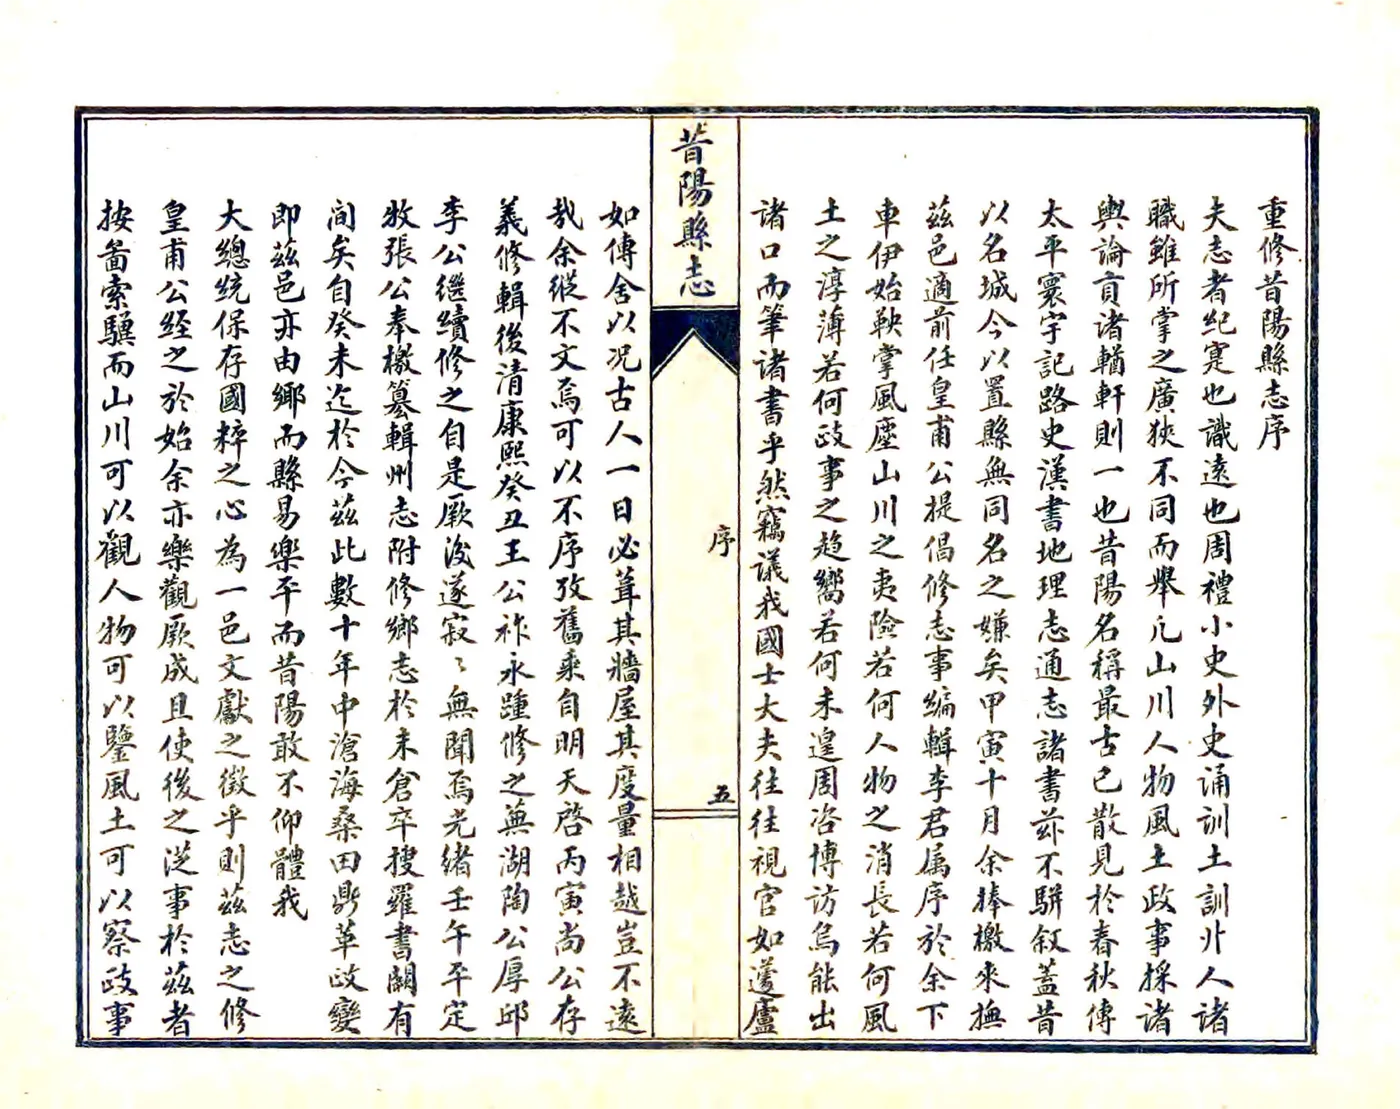 重修昔陽縣志序
夫志者紀寔也識遠也周禮小史外史誦訓土訓廾人諸
職雖所掌之廣狹不同而舉凡山川人物風土政事採諸
輿論貢諸輶軒則一也昔陽名稱最古已散見於春秋傳
太平寰宇記路史漢書地理志通志諸書茲不駢叙蓋昔
以名城今以置縣無同名之嫌矣甲寅十月余捧檄來撫
茲邑適前任皇甫公提倡修志事編輯李君属序於余下
車伊始鞅掌風塵山川之夷險若何人物之消長若何風
土之淳薄若何政事之趨嚮若何未遑周咨博访烏能出
諸口而筆諸書乎然竊議我國士大夫往往視官如蘧廬
昔陽縣志
序
五
如傳舍以况古人一日必葺其牆屋其度量相越豈不遠
哉余縱不文焉可以不序攷舊乘自明天啓丙寅尚公存
義修輯後清康熙癸丑王公祚永踵修之蕪湖陶公厚邱
李公继續修之自是厥後遂寂〻無聞焉光緒壬午平定
牧張公奉檄纂輯州志附修鄉志於末倉卒搜羅書闕有
间矣自癸未迄於今茲此數十年中滄海桑田鼎革政變
即茲邑亦由鄉而縣易樂平而昔陽敢不仰體我
大總统保存國粹之心為一邑文獻之徵乎則茲志之修
皇甫公经之於始余亦樂觀厥成且使後之従事於茲者
按啚索驥而山川可以觀人物可以鑒風土可以察政事